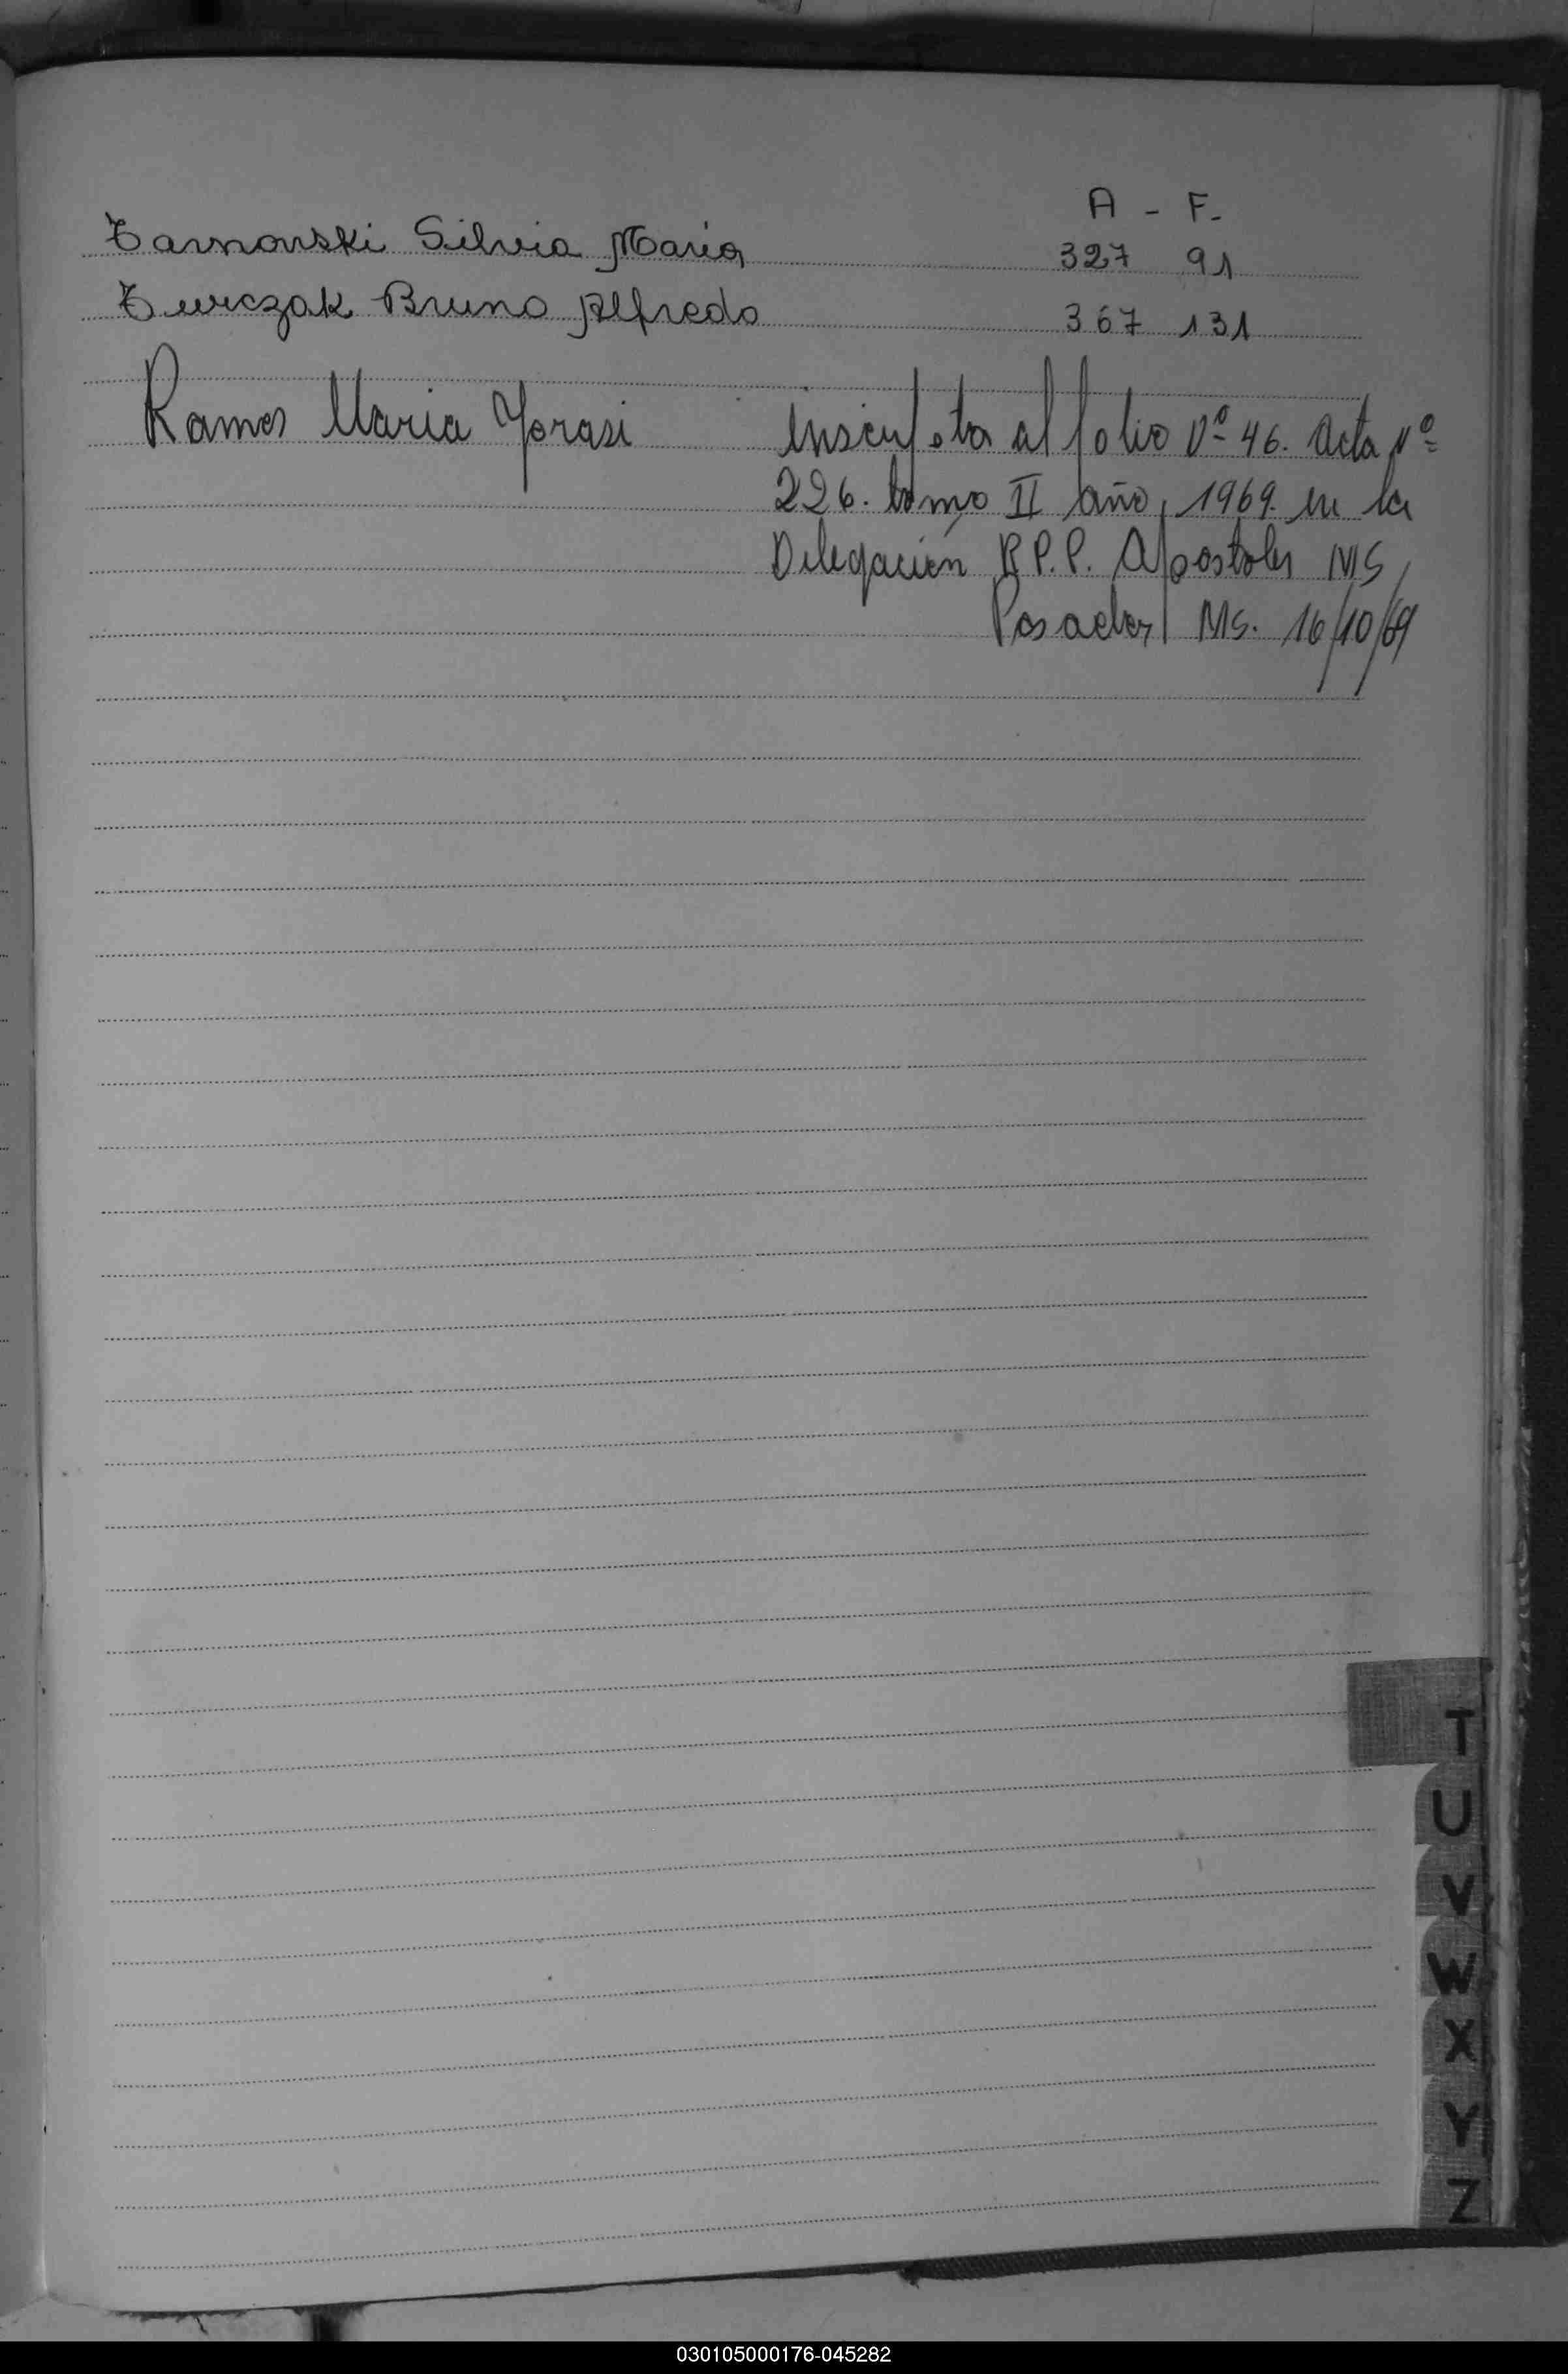 A - F-
Tarnowski Silvia Maria 327 91
Turczak Bruno Alfredo 367 131
Ramos Maria Yorasi inscripta al folio Nº 46. Acta Nº
226. tomo II año, 1969. en la
Delegación R.P.P. Apostoles MS
Posadas MS. 16/10/69
T
U
V
W
X
Y
Z
030105000176-045282